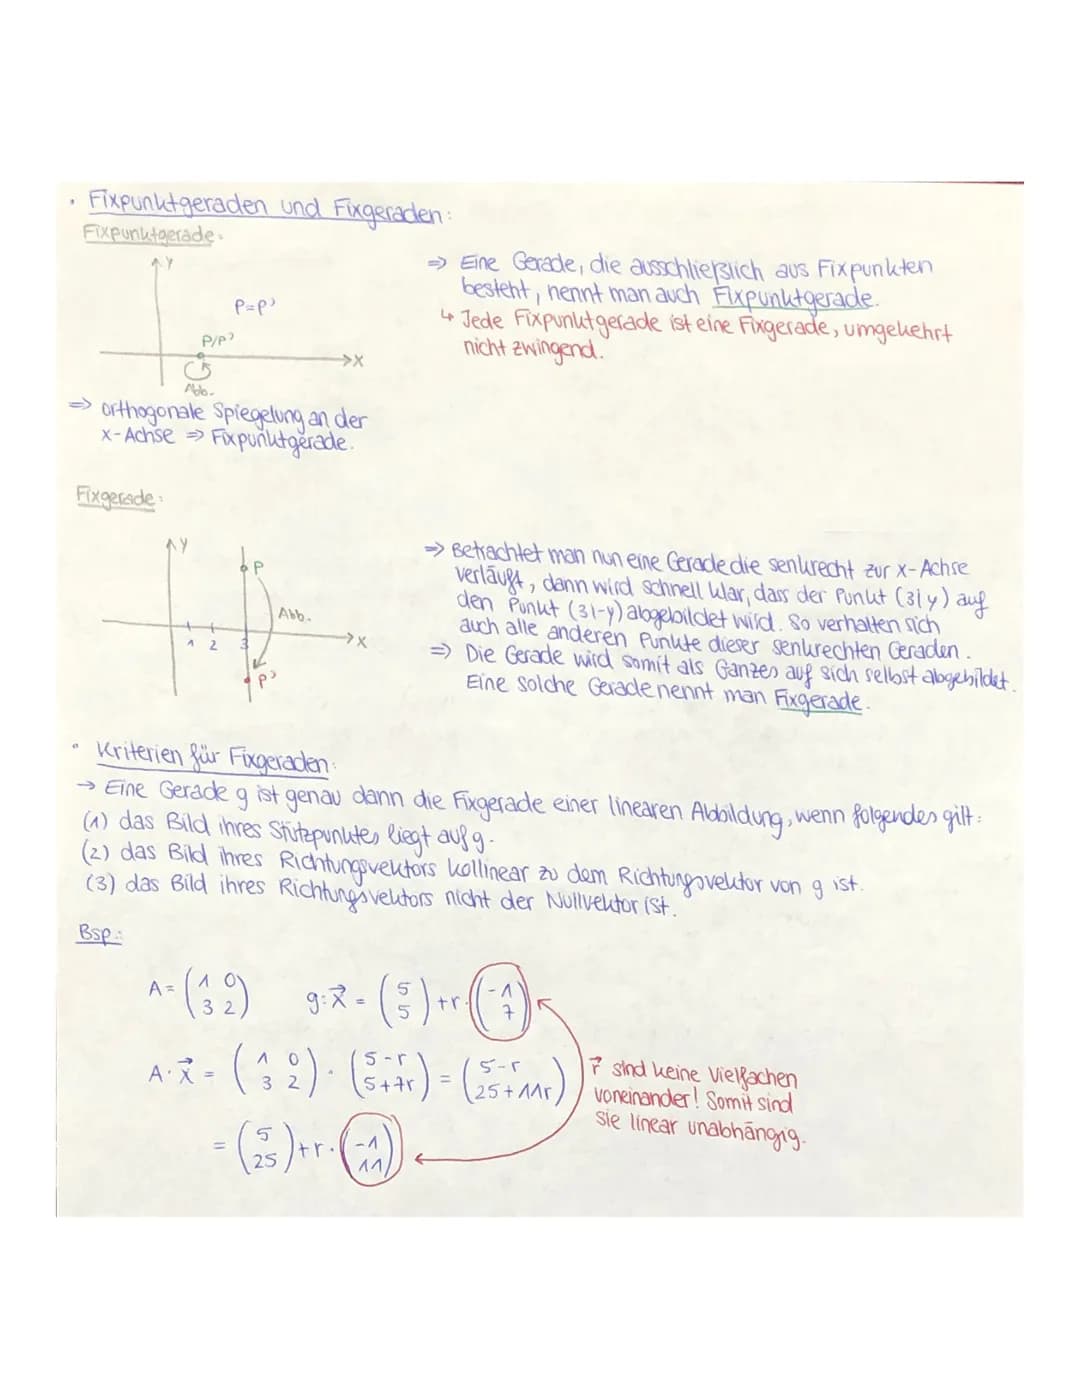 • Fixpunktgeraden und Fixgeraden:
Fixpunktgerade:
y
P=P'
P/P'
x
Abb.
=> orthogonale Spiegelung an der
x-Achse => Fixpunktgerade.
=> Eine Gerade, die ausschließlich aus Fixpunkten
besteht, nennt man auch Fixpunktgerade.
↳ Jede Fixpunktgerade ist eine Fixgerade, umgekehrt
nicht zwingend.
Fixgerade:
y
P
Abb.
1 2 3
x
P'
=> Betrachtet man nun eine Gerade die senkrecht zur x-Achse
verläuft, dann wird schnell klar, dass der Punkt (3|y) auf
den Punkt (3|-y) abgebildet wird. So verhalten sich
auch alle anderen Punkte dieser senkrechten Geraden.
=> Die Gerade wird somit als Ganzes auf sich selbst abgebildet.
Eine solche Gerade nennt man Fixgerade.
• Kriterien für Fixgeraden:
→ Eine Gerade g ist genau dann die Fixgerade einer linearen Abbildung, wenn folgendes gilt:
(1) das Bild ihres Stützpunktes liegt auf g.
(2) das Bild ihres Richtungsvektors kollinear zu dem Richtungsvektor von g ist.
(3) das Bild ihres Richtungsvektors nicht der Nullvektor ist.
Bsp.:
A = (1 0; 3 2) g: x⃗ = (5; 5) + r · (-1; 7)
A · x⃗ = (1 0; 3 2) · (5-r; 5+7r) = (5-r; 25+11r)
= (5; 25) + r · (-1; 11)
r⃗ sind keine Vielfachen
voneinander! Somit sind
sie linear unabhängig.